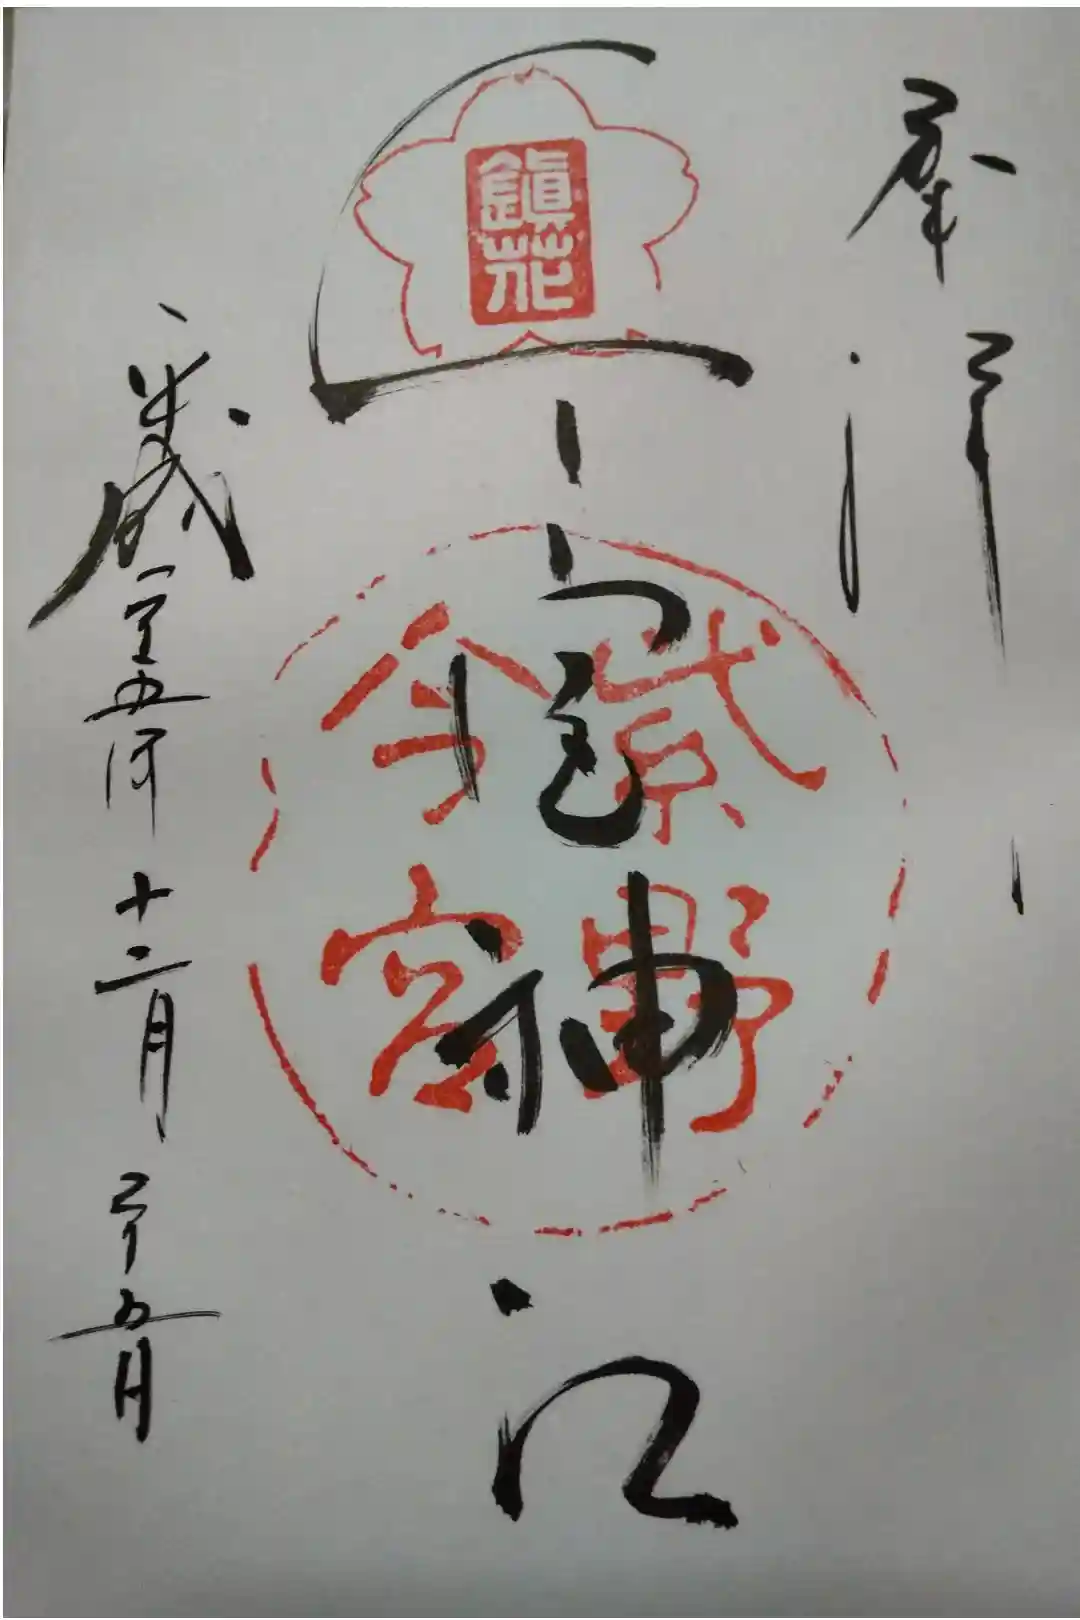 奉拝
鎭花
今宮神社
紫野
今宮
平成二十五年十二月二十五日